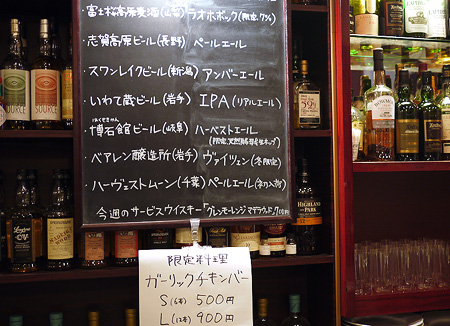 ・富士桜高原麦酒(山梨)ラオホボック(限定, 7%)
・志賀高原ビール(長野) ペールエール
・スワンレイクビール(新潟) アンバーエール
・いわて蔵ビール(岩手) IPA(リアルエール)
・博石館ビール(岐阜) ハーベストエール
はくせきかん
・ベアレン醸造所(岩手) ヴァイツェン(冬限定)
・ハーヴェストムーン(千葉) ペールエール
今週のサービスウイスキー「グレンモーレンジ マデラウッド」700円
限定料理
ガーリックチキンバー
S(6本) 500円
L(12本) 900円
HIGHLAND
PARK
BOWMORE